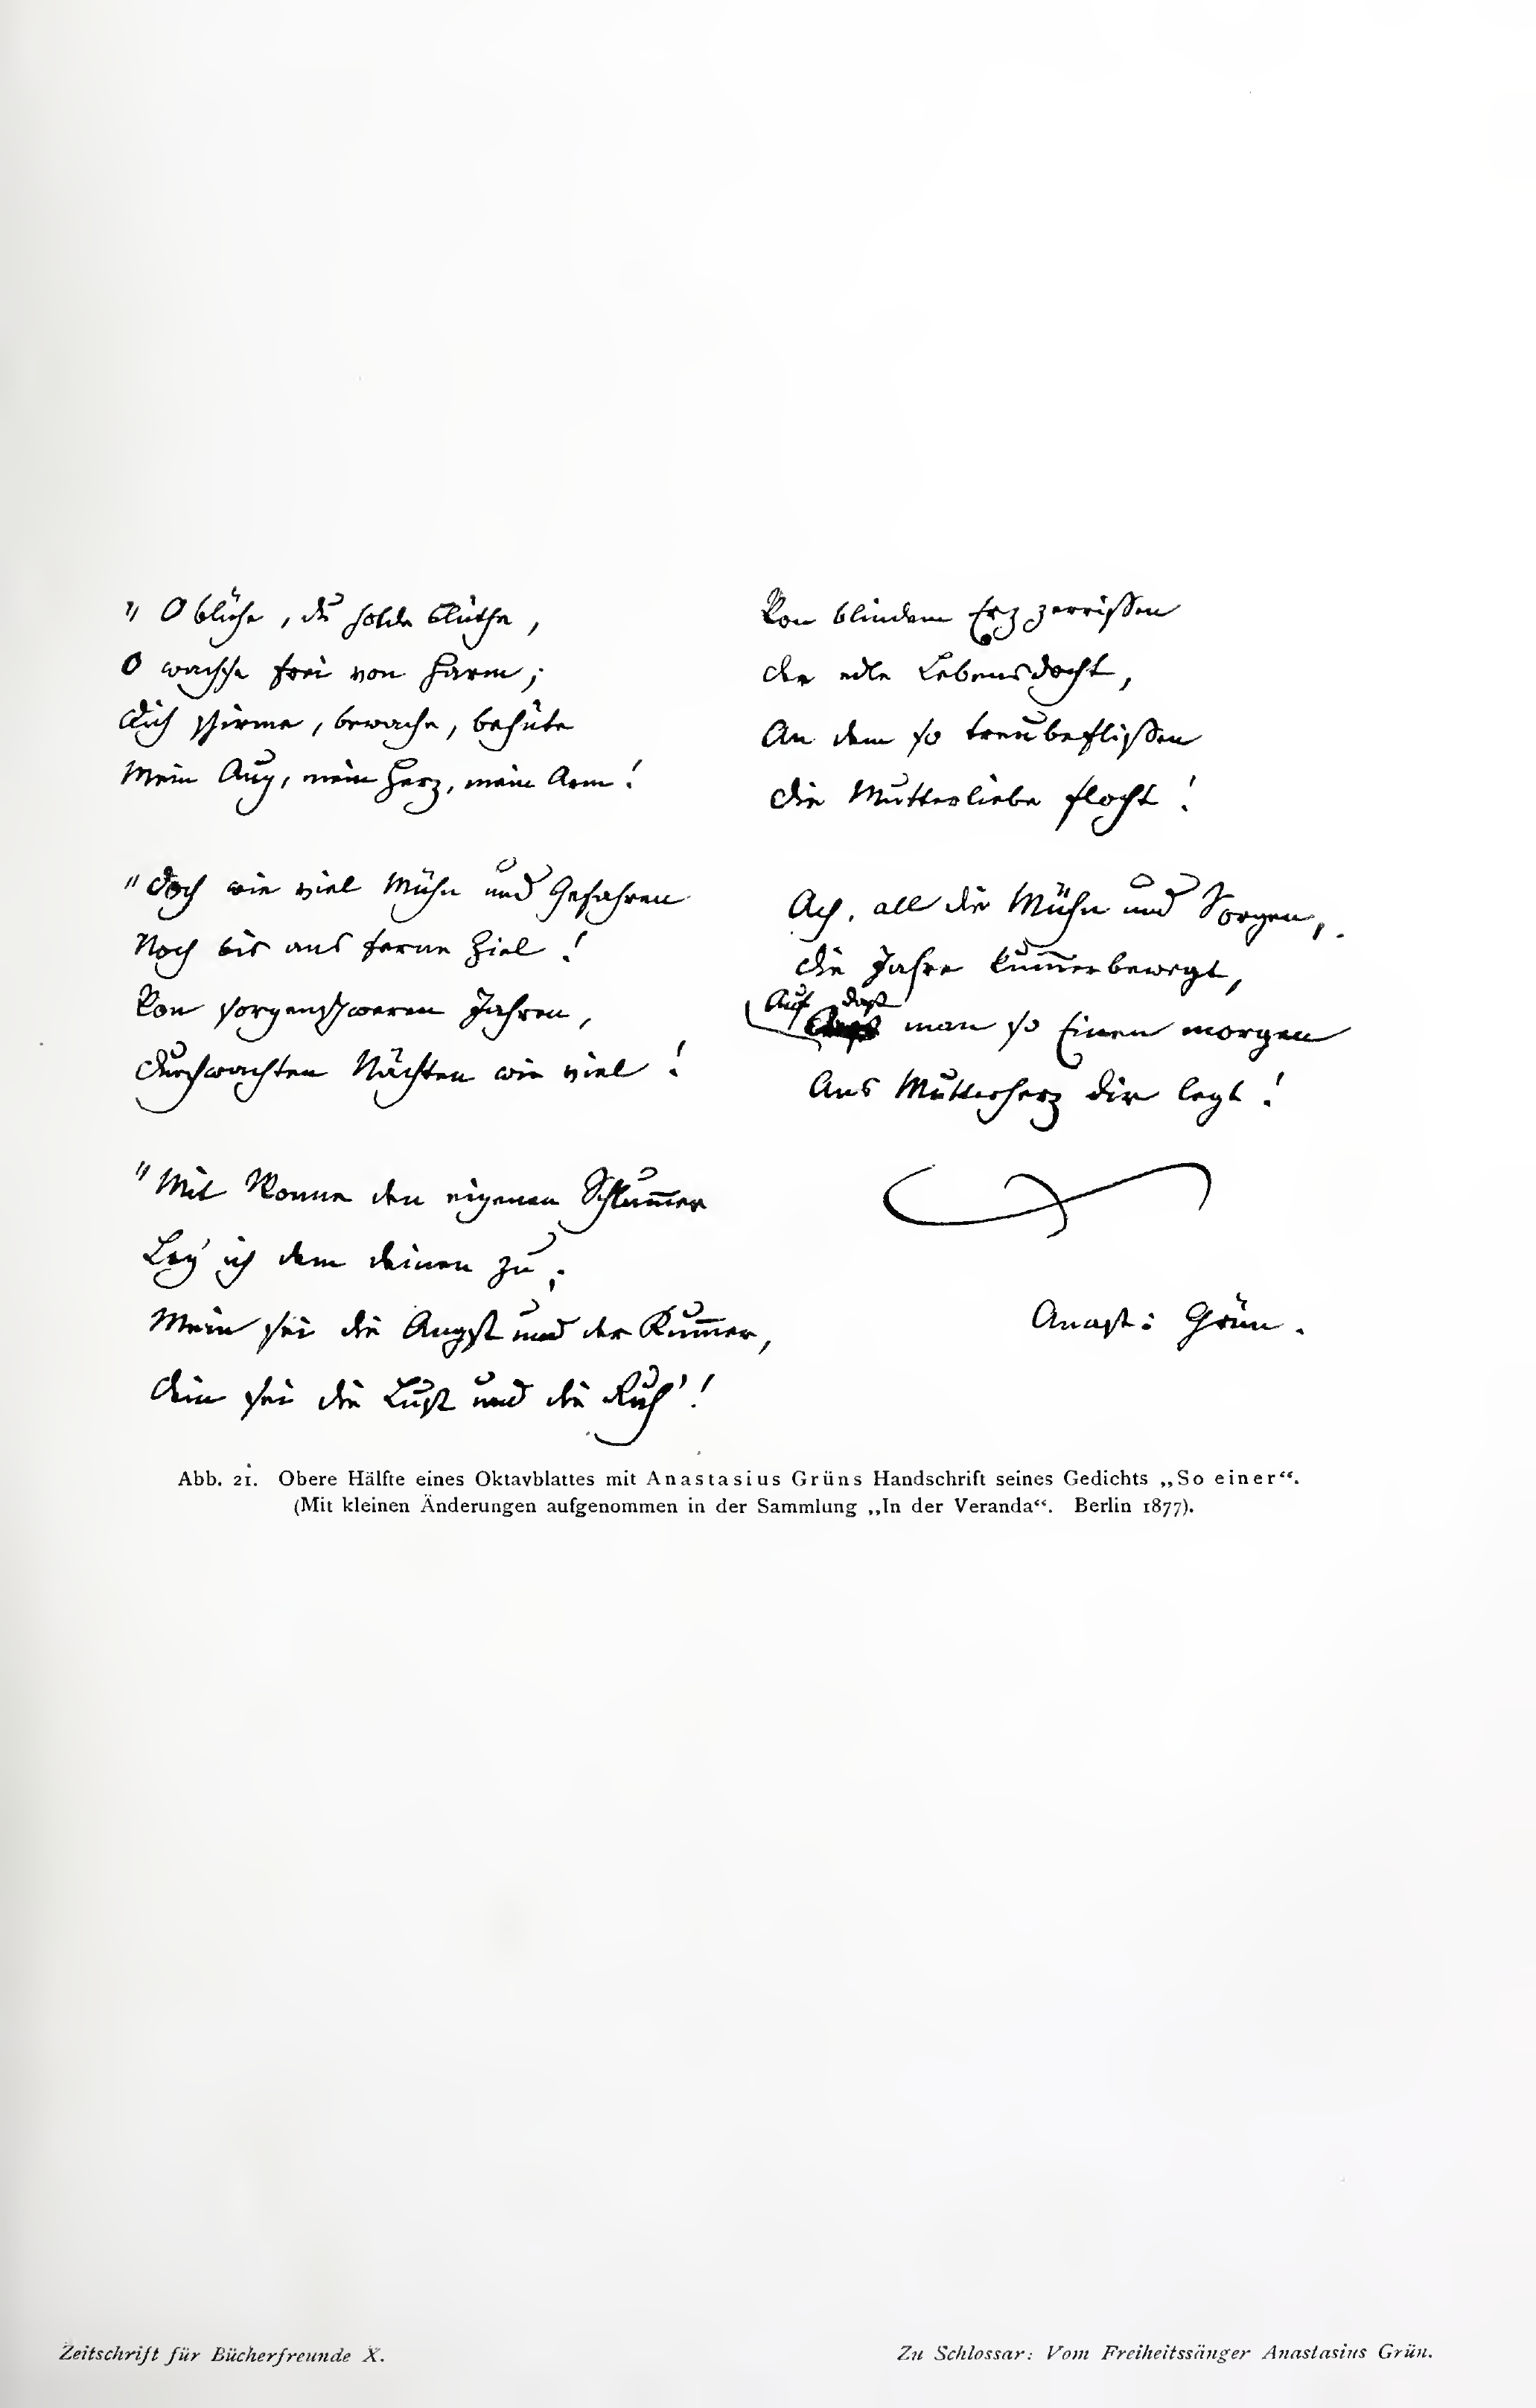 " O blühe, du holde Blüthe,
O wachse frei von Harm;
Dich schirme, bewache, behüte
Mein Aug, mein Herz, mein Arm!
" Doch wie viel Mühn und Gefahren
Noch bis ans ferne Ziel!
Von sorgenschweren Jahren,
Durchwachten Nächten wie viel!
" Mit Wonne den eigenen Schlum̅er
Leg' ich dem deinen zu;
Mein sei die Angst und der Kum̅er,
Dein sei die Lust und die Ruh'!
Von blindem Erz zerrissen
Der edle Lebensdocht,
An dem so treubeflissen
Die Mutterliebe flocht!
Ach, all die Mühn und Sorgen,
Die Jahre kum̅erbewegt,
Auf daß man so Einen morgen
Ans Mutterherz dir legt!
Anast: Grün.
Abb. 21. Obere Hälfte eines Oktavblattes mit Anastasius Grüns Handschrift seines Gedichts „So einer“.
(Mit kleinen Änderungen aufgenommen in der Sammlung „In der Veranda“. Berlin 1877).
Zeitschrift für Bücherfreunde X.
Zu Schlossar: Vom Freiheitssänger Anastasius Grün.